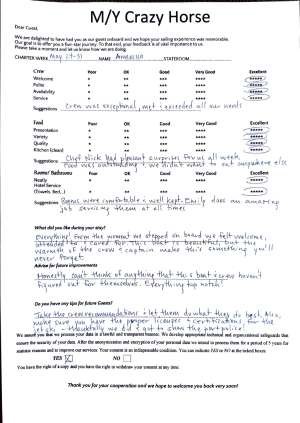 M/Y Crazy Horse
Dear Guest,
We are delighted to have had you as our guest onboard and we hope your sailing experience was memorable.
Our goal is to offer you a five-star journey. To that end, your feedback is of vital importance to us.
Please take a moment and let us know how we are doing.
CHARTER WEEK May 24-31 NAME STATEROOM
Crew Poor OK Good Very Good Excellent
Welcome * ** *** **** *****
Polite * ** *** **** *****
Availability * ** *** **** *****
Service * ** *** **** *****
Suggestions Crew was exceptional, met & exceeded all our needs
Food Poor OK Good Very Good Excellent
Presentation * ** *** **** *****
Variety * ** *** **** *****
Quality * ** *** **** *****
Kitchen &bard * ** *** **** *****
Suggestions Chef Nick had pleasant surprises for us all week
Food was outstanding, we didn't want to eat anywhere else
Rooms/ Bathrooms Poor OK Good Very Good Excellent
Neatly * ** *** **** *****
Hotel Service
(Towels, Bed..) * ** *** **** *****
Suggestions Rooms were comfortable & well kept. Emily does an amazing
job serving them at all times
What did you like during your stay?
Everything! From the moment we stepped on board we felt welcome,
attended to & cared for. This boat is beautiful, but the
warmth of the crew & captain make this something you'll
never forget
Advice for future improvements
Honestly can't think of anything that this boat & crew haven't
figured out for themselves. Everything top notch!
Do you have any tips for future Guests?
Take the crew recommendations & let them do what they do best. Also,
make sure you have the proper licenses & certifications for the
jet skis - thankfully we did & got to show the port police!
We assure you that we process your data in a lawful and transparent manner. We develop appropriate technical and organizational safeguards that
ensure the security of your data. After the anonymization and encryption of your personal data we intend to process them for a period of 5 years for
statistic reasons and to improve our services. Your consent is an indispensable condition. You can indicate YES or NO in the tasked boxes:
YES NO
You have the right of a copy and you have the right to withdraw your consent at any time.
Thank you for your cooperation and we hope to welcome you back very soon!